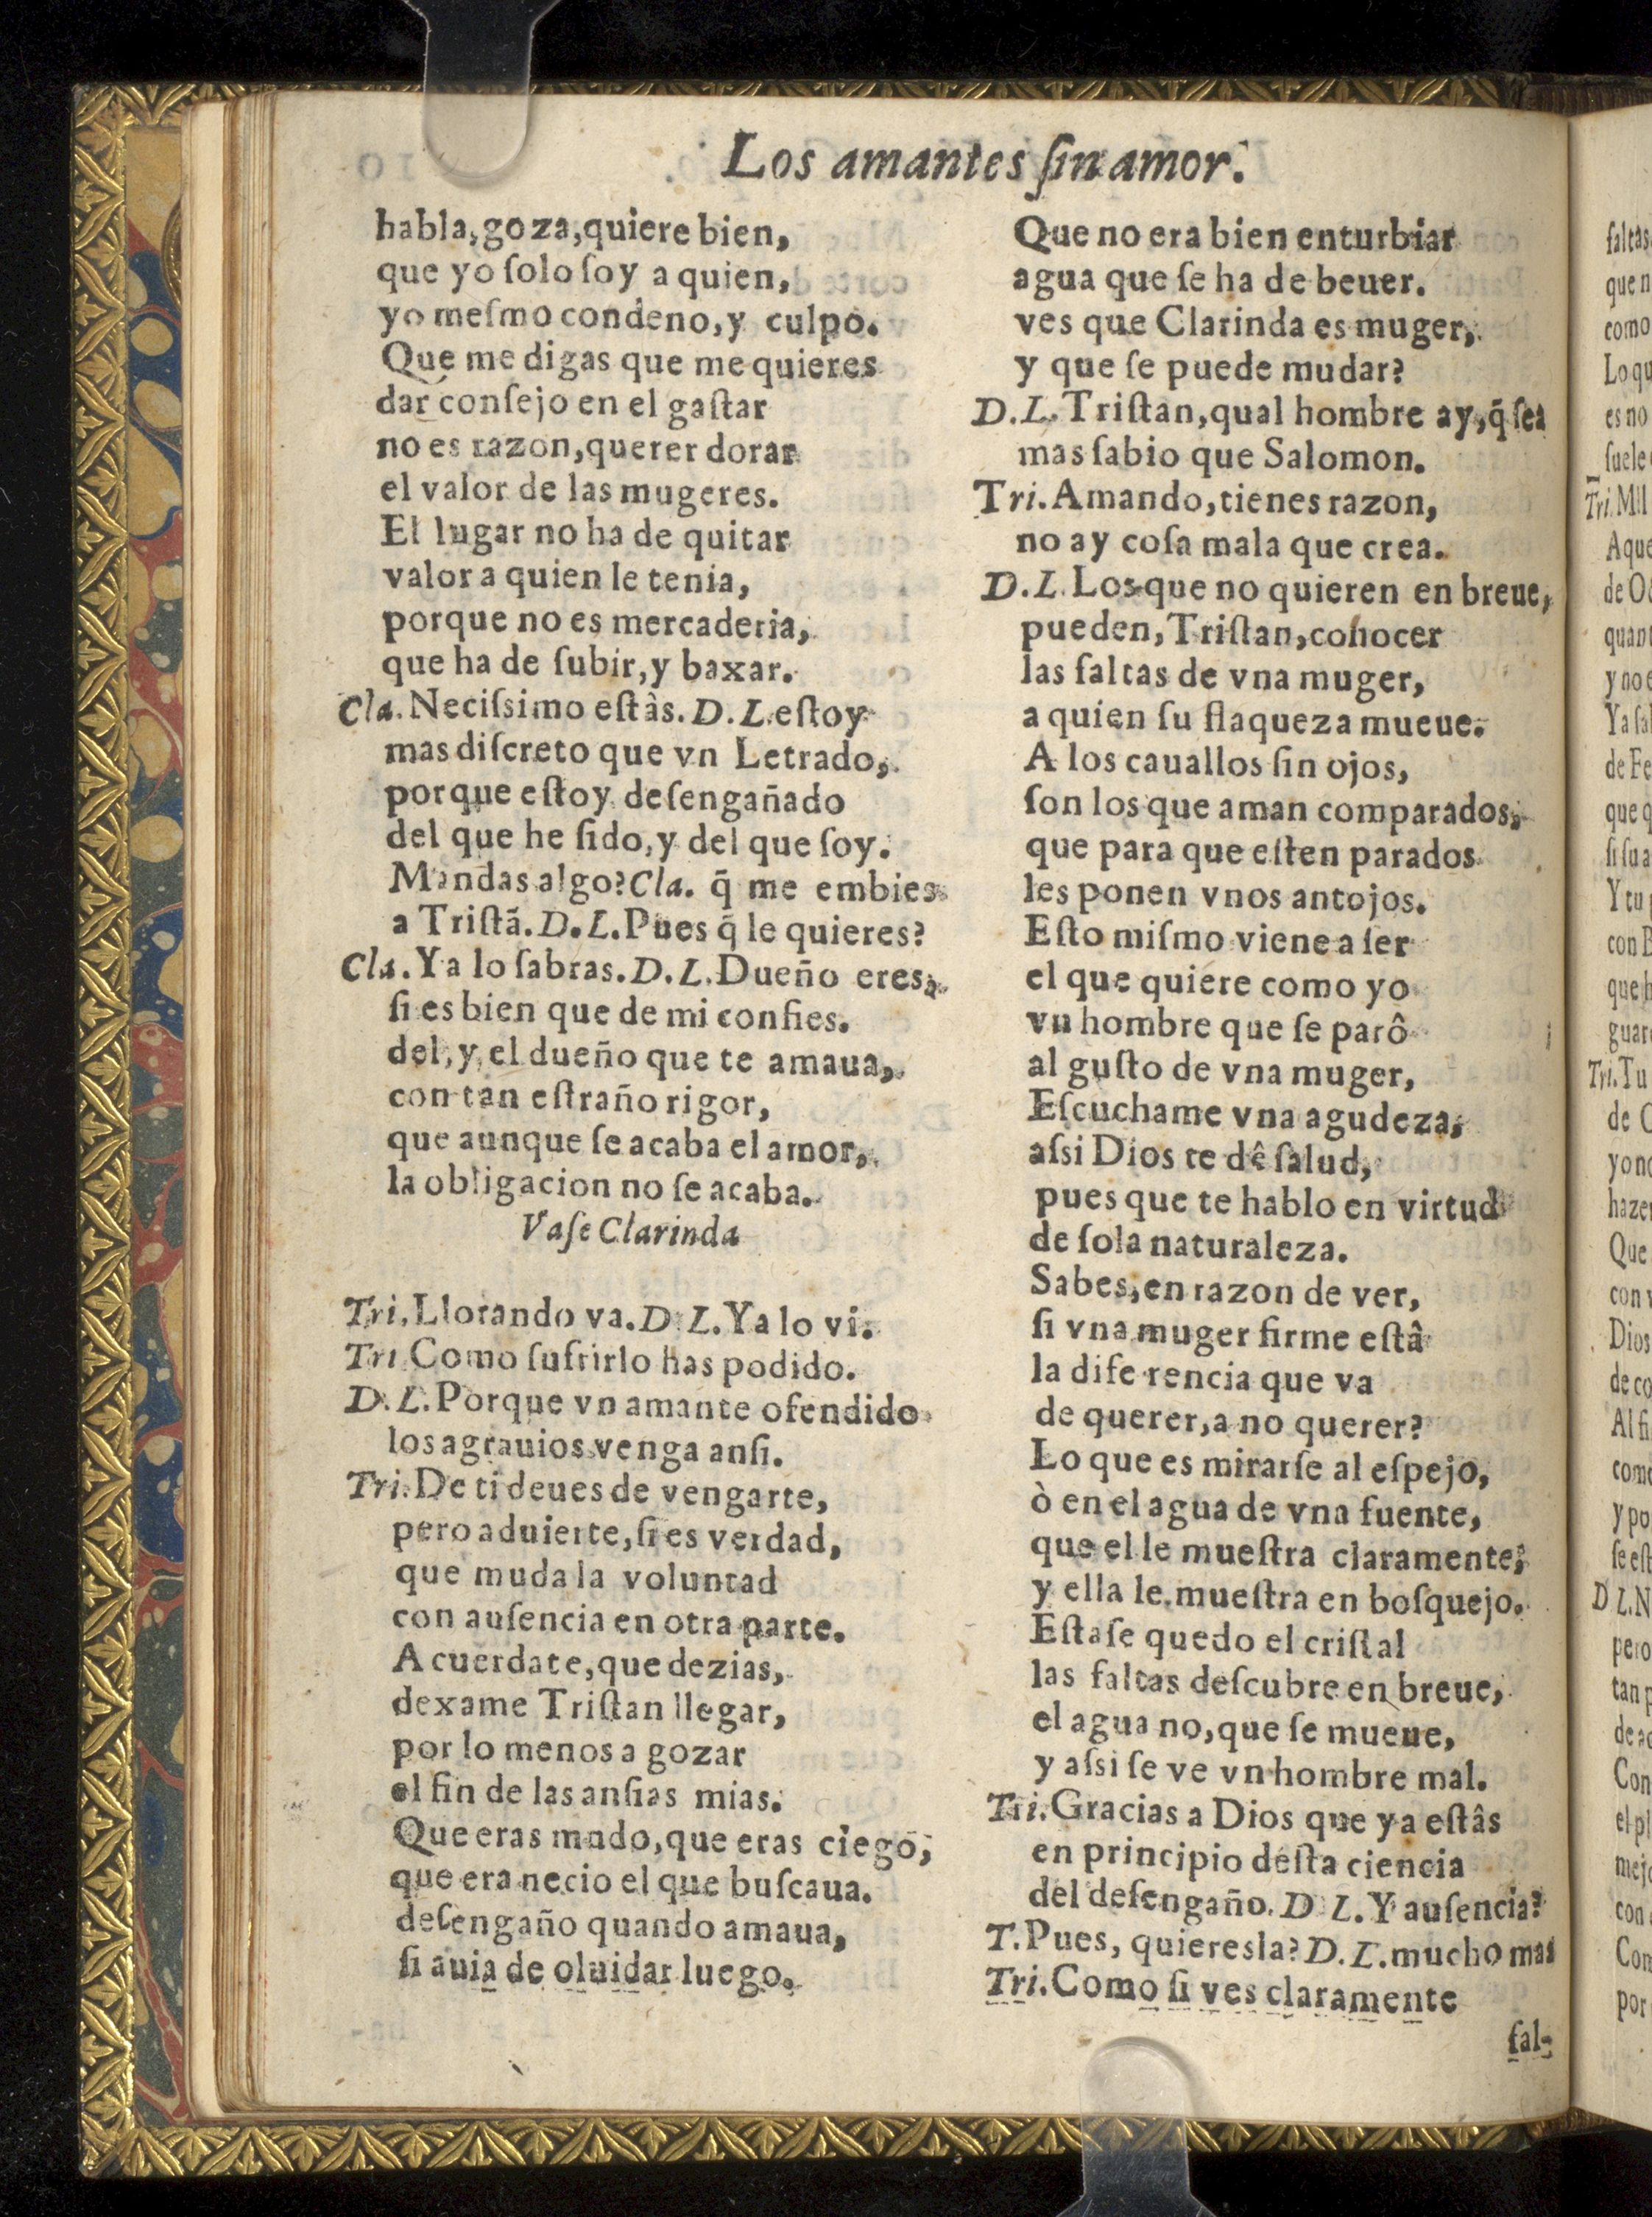 Los amantes ſin amor.
habla, goza, quiere bien,
que yo ſolo ſoy a quien,
yo meſmo condeno, y culpo.
Que me digas que me quieres
dar conſejo en el gaſtar
no es razon, querer dorar
el valor de las mugeres.
El lugar no ha de quitar
valor a quien le tenia,
porque no es mercaderia,
que ha de ſubir, y baxar.
Cla. Neciſsimo eſtàs. D. L. eſtoy
mas diſcreto que vn Letrado,
porque eſtoy deſengañado
del que he ſido, y del que ſoy.
Mandas algo? Cla. q̃ me embies
a Triſtã. D. L. Pues q̃ le quieres?
Cla. Ya lo ſabras. D. L. Dueño eres,
ſi es bien que de mi confies.
del, y el dueño que te amaua,
con tan eſtraño rigor,
que aunque ſe acaba el amor,
la obligacion no ſe acaba.
Vaſe Clarinda
Tri. Llorando va. D. L. Ya lo vi.
Tri. Como ſufrirlo has podido.
D. L. Porque vn amante ofendido
los agrauios venga anſi.
Tri. De ti deues de vengarte,
pero aduierte, ſi es verdad,
que muda la voluntad
con auſencia en otra parte.
Acuerdate, que dezias,
dexame Triſtan llegar,
por lo menos a gozar
el fin de las anſias mias.
Que eras mudo, que eras ciego,
que era necio el que buſcaua.
deſengaño quando amaua,
ſi auia de oluidar luego.
Que no era bien enturbiar
agua que ſe ha de beuer.
ves que Clarinda es muger,
y que ſe puede mudar?
D. L. Triſtan, qual hombre ay, q̃ ſea
mas ſabio que Salomon.
Tri. Amando, tienes razon,
no ay coſa mala que crea.
D. L. Los que no quieren en breue,
pueden, Triſtan, conocer
las faltas de vna muger,
a quien ſu flaqueza mueue.
A los cauallos ſin ojos,
ſon los que aman comparados,
que para que eſten parados
les ponen vnos antojos.
Eſto miſmo viene a ſer
el que quiere como yo
vn hombre que ſe parô
al guſto de vna muger,
Eſcuchame vna agudeza,
aſsi Dios te dê ſalud,
pues que te hablo en virtud
de ſola naturaleza.
Sabes, en razon de ver,
ſi vna muger firme eſtâ
la dife rencia que va
de querer, a no querer?
Lo que es mirarſe al eſpejo,
ò en el agua de vna fuente,
que el le mueſtra claramente,
y ella le mueſtra en boſquejo.
Eſtaſe quedo el criſtal
las faltas deſcubre en breue,
el agua no, que ſe mueue,
y aſsi ſe ve vn hombre mal.
Tri. Gracias a Dios que ya eſtâs
en principio deſta ciencia
del deſengaño. D. L. Y auſencia?
T. Pues, quieresla? D. L. mucho mas
Tri. Como ſi ves claramente
fal-
faltas
que n
como
Lo qu
es no
ſuele
Tri. Mil
Aque
de O
quant
y no e
Ya ſa
de Fe
que q
ſi ſu a
Y tu
con
que h
guar
Tri. Tu
de
yo no
hazer
Que
con v
Dios
de co
Al fi
como
y po
ſe eſt
D L. N
pero
tan p
de
Con
el pl
mejo
con
Con
por